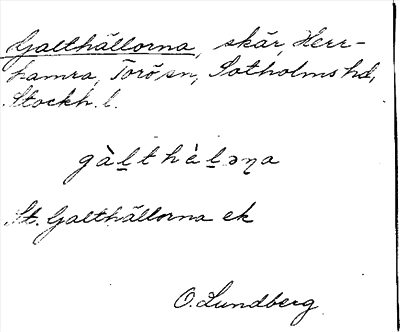 Galthällorna, skär, Herr-
hamra, Torö sn, Sotholms hd,
Stockh. l.
gàḻthèḻəṇa
St. Galthällorna ek
O. Lundberg